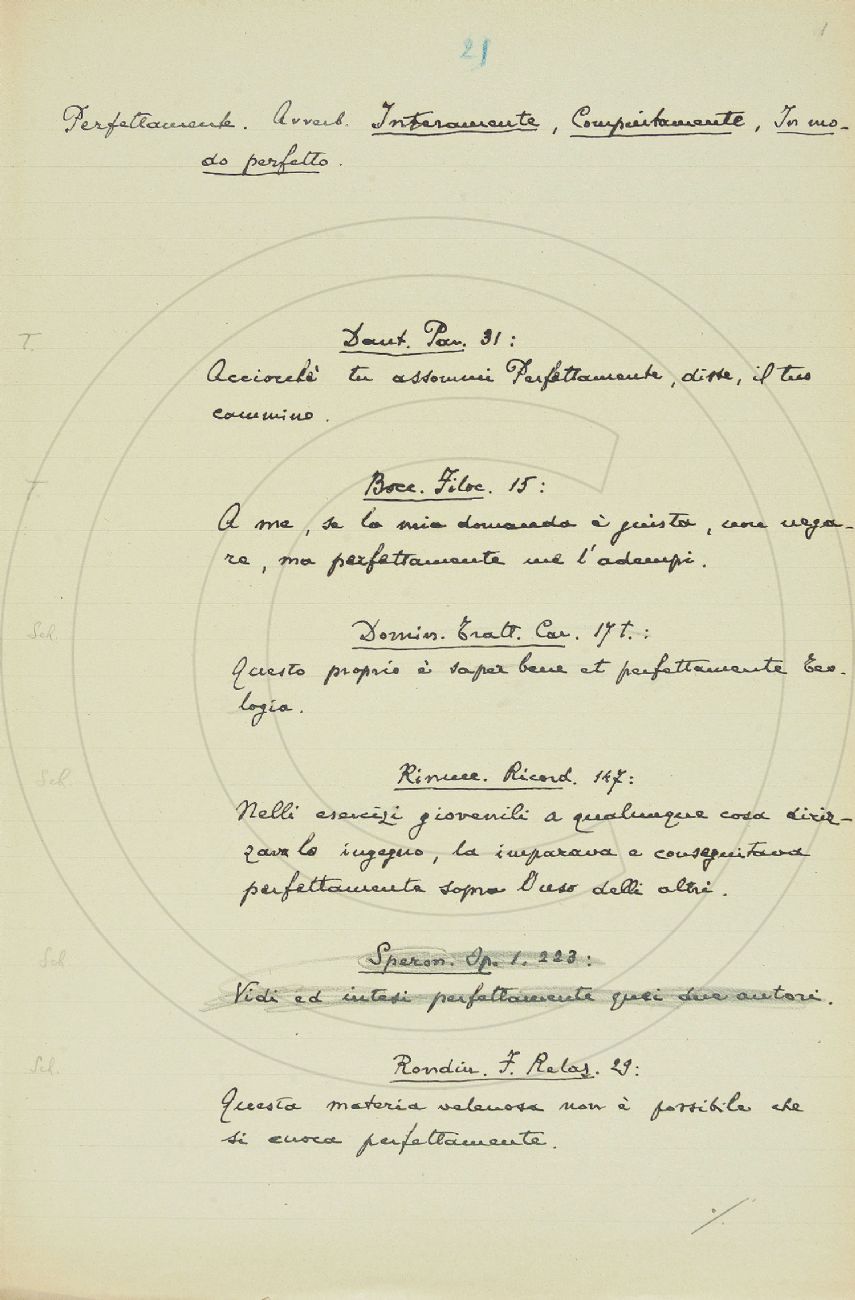 1
21
Perfettamente. Avverb. Interamente, Compiutamente, In mo-
do perfetto.
T.
Dant. Par. 31:
Acciocchè tu assommi Perfettamente, disse, il tuo
cammino.
T
Bocc. Filoc. 15:
A me, se la mia domanda è giusta, non nega-
re, ma perfettamente me l'adempi.
Sch.
Domin. Tratt. Car. 17 t.:
Questo proprio è saper bene et perfettamente Teo-
logia.
Sch.
Rinucc. Ricord. 147:
Nelli esercizi giovenili a qualunque cosa diriz-
zava lo ingegno, la imparava e conseguitava
perfettamente sopra l'uso delli altri.
Sch
Speron. Op. 1. 223:
Vidi ed intesi perfettamente quei due autori.
Sch.
Rondin. F. Relaz. 29:
Questa materia velenosa non è possibile che
si cuoca perfettamente.